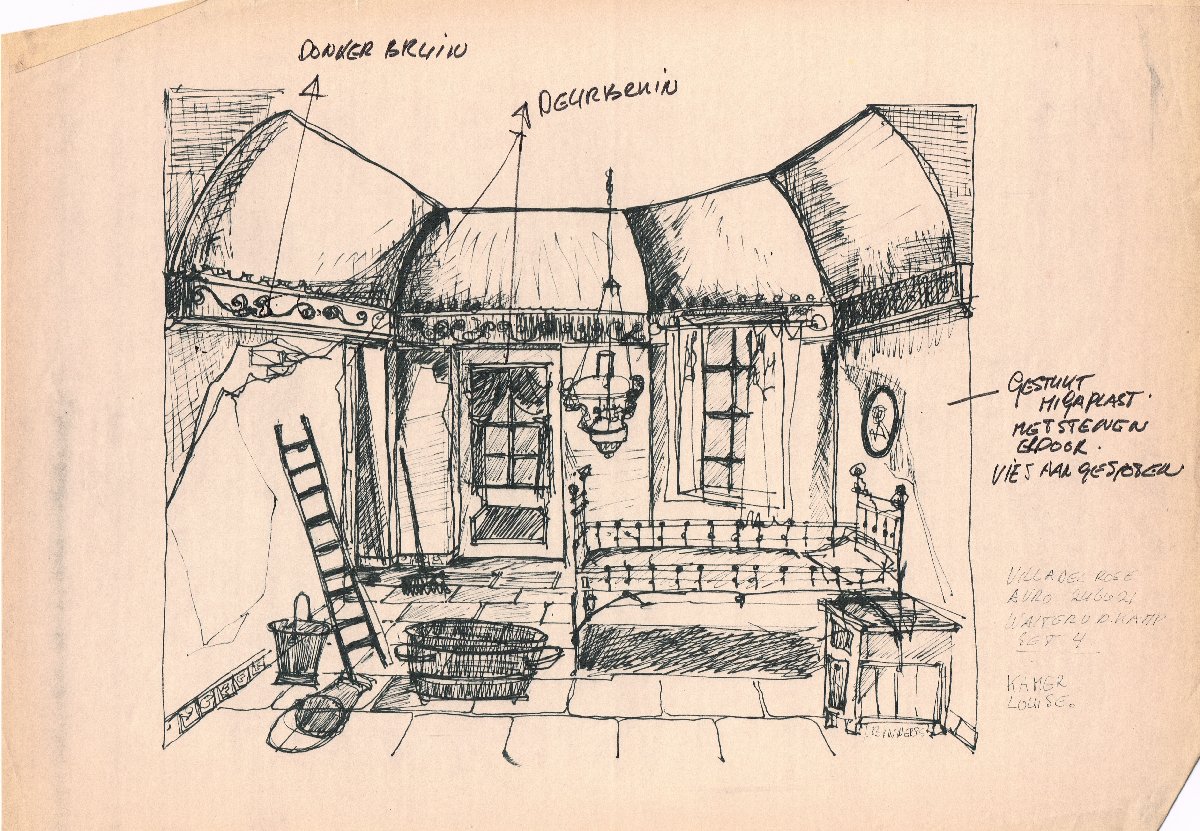 DONKER BRUIN
DEURBRUIN
GESTUKT
MIGAPLAST.
MET STENEN
ERDOOR.
VIES AANGESPOTEN
VILLA DES ROSES
AVRO
WALTER V.D. KAMP
SET 4
KAMER
LOUISE.